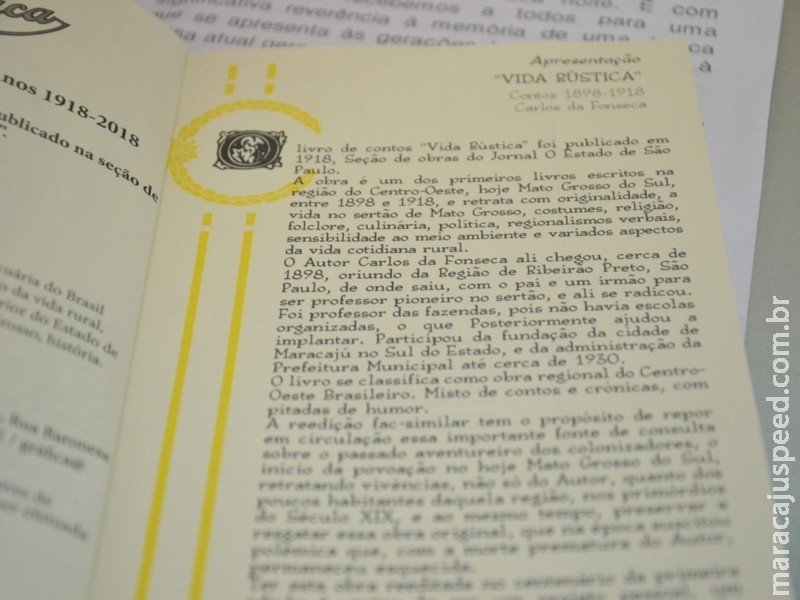 significativa reverência à memória de uma
que se apresenta às gerações
recebemos a todos para uma
noite. E com
nos 1918-2018
ublicado na seção de
cuária do Brasil
da vida rural,
rior do Estado de
rosso, história.
Rua Baronesa
Apresentação
"VIDA RÚSTICA"
Contos 1898-1918
Carlos da Fonseca
O livro de contos "Vida Rústica" foi publicado em
1918, Seção de obras do Jornal O Estado de São
Paulo.
A obra é um dos primeiros livros escritos na
região do Centro-Oeste, hoje Mato Grosso do Sul,
entre 1898 e 1918, e retrata com originalidade, a
vida no sertão de Mato Grosso, costumes, religião,
folclore, culinária, política, regionalismos verbais,
sensibilidade ao meio ambiente e variados aspectos
da vida cotidiana rural.
O Autor Carlos da Fonseca ali chegou, cerca de
1898, oriundo da Região de Ribeirão Preto, São
Paulo, de onde saiu, com o pai e um irmão para
ser professor pioneiro no sertão, e ali se radicou.
Foi professor das fazendas, pois não havia escolas
organizadas, o que Posteriormente ajudou a
implantar. Participou da fundação da cidade de
Maracajú no Sul do Estado, e da administração da
Prefeitura Municipal até cerca de 1930.
O livro se classifica como obra regional do Centro-
Oeste Brasileiro. Misto de contos e crônicas, com
pitadas de humor.
A reedição fac-similar tem o propósito de repor
em circulação essa importante fonte de consulta
sobre o passado aventureiro dos colonizadores, o
início da povoação no hoje Mato Grosso do Sul,
retratando vivências, não só do Autor, quanto dos
poucos habitantes daquela região, nos primórdios
do Século XIX, e ao mesmo tempo, preservar e
resgatar essa obra original, que na época suscitou
polêmica que, com a morte prematura do Autor,
permaneceu esquecida.
Ter esta obra reeditada no centenário da primeira
maracajuspeed.com.br